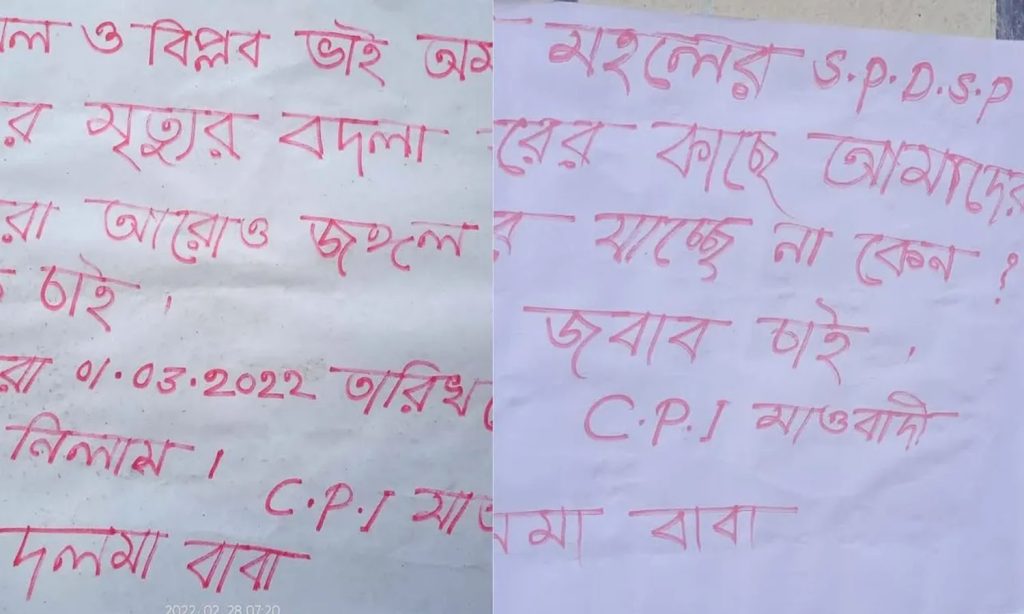 ল ও বিপ্লব ভাই
র মৃত্যুর বদলা
রা আরোও জঙ্গল
চাই ।
রা 01.03.2022 তারিখ
নিলাম ।
C.P.I মাও
দলমা বাবা
2022.02.28 07:20
মহলের S.P.D.S.P
রের কাছে আমাদের
র যাচ্ছে না কেন ?
জবাব চাই ।
C.P.I মাওবাদী
মা বাবা